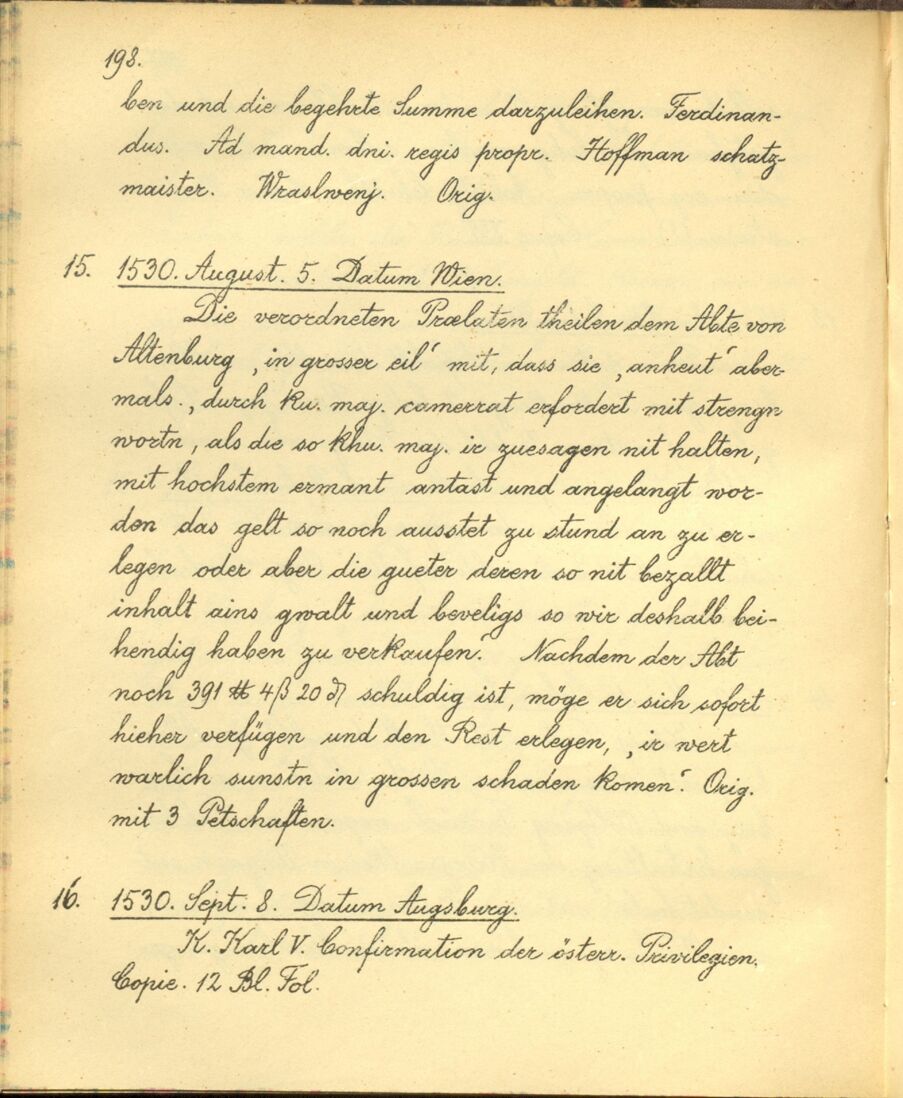 198.
ben und die begehrte Summe darzuleihen. Ferdinan-
dus. Ad mand. dni. regis propr. Hoffman schatz-
maister. Wraslwenj. Orig.
15. 1530. August. 5. Datum Wien.
Die verordneten Prælaten theilen dem Abte von
Altenburg ‚in grosser eil‘ mit, dass sie ‚anheut‘ aber-
mals ‚durch ku. maj. camerrat erfordert mit strengn
wortn, als die so khu. maj. ir zuesagen nit halten,
mit hochstem ermant antast und angelangt wor-
den das gelt so noch ausstet zu stund an zu er-
legen oder aber die gueter deren so nit bezallt
inhalt ains gwalt und beveligs so wir deshalb bei-
hendig haben zu verkaufen.‘ Nachdem der Abt
noch 391 ℔ 4 ß 20 ₰ schuldig ist, möge er sich sofort
hieher verfügen und den Rest erlegen, ‚ir wert
warlich sunstn in grossen schaden komen.‘ Orig.
mit 3 Petschaften.
16. 1530. Sept. 8. Datum Augsburg.
K. Karl V. Confirmation der österr. Privilegien.
Copie. 12 Bl. Fol.